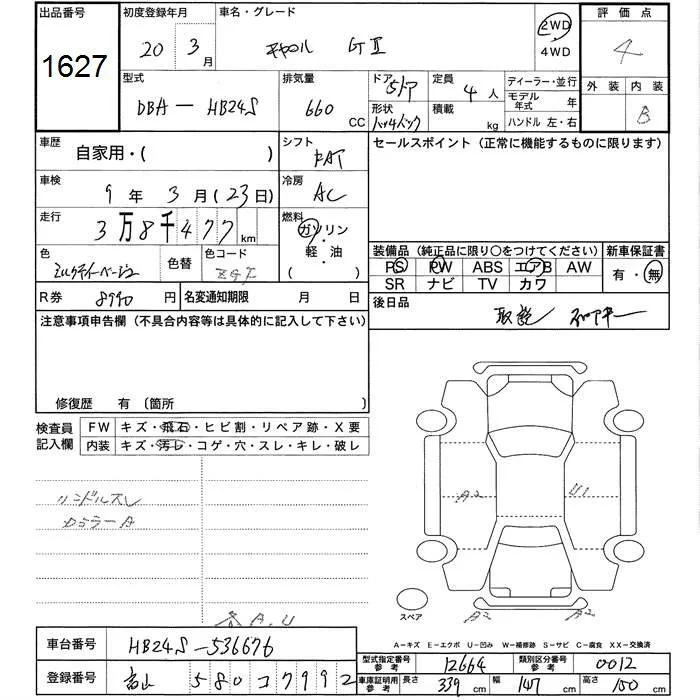 出品番号 初度登録年月 車名・グレード 評価点
1627 20 3月 キャロル GⅡ 2WD・4WD 4
型式 排気量 ドア 5ドア 定員 4人 ディーラー・並行 外装 内装
DBA-HB24S 660 CC 形状 ハッチバック 積載 kg モデル年式 年 B
ハンドル 左・右
車歴 自家用・( ) シフト FAT セールスポイント (正常に機能するものに限ります)
車検 9年3月(23日) 冷房 AC
走行 3万8千477km 燃料 ガソリン・軽・油 ( )
色 ミルクティーベージュ 色替 色コード ZGT
装備品 (純正品に限り〇をつけてください) 新車保証書
PS PW ABS エアB AW 有・無
SR ナビ TV カワ
R券 8990円 名変通知期限 月 日 後日品 取説
注意事項申告欄 (不具合内容等は具体的に記入して下さい)
修復歴 有 〔箇所 〕
検査員記入欄 FW キズ・飛石・ヒビ割・リペア跡・X要
内装 キズ・汚レ・コゲ・穴・スレ・キレ・破レ
ハンドルスレ
カラーA
A2 U1
A.U
スペア A2 A2
A-キズ E-エクボ U-凹み W-補修跡 S-サビ C-腐食 XX-交換済
車台番号 HB24S-536676
型式指定番号 参考 12664 類別区分番号 参考 0012
登録番号 富山 580 コ 7992
車庫証明用 参考 長さ 339cm 幅 147cm 高さ 150cm